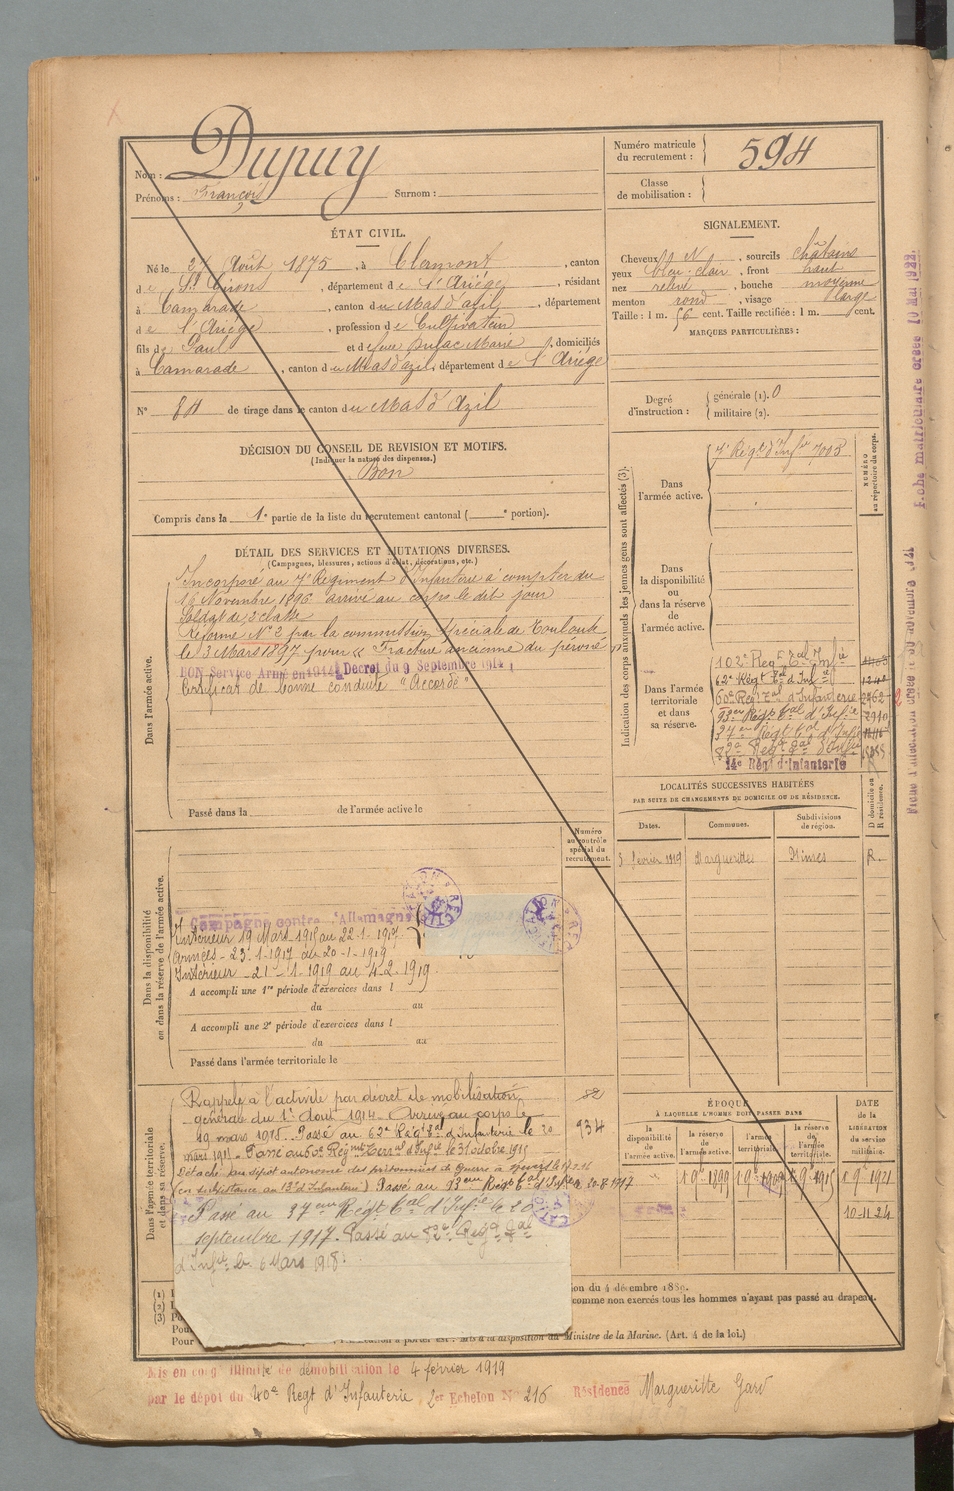 Nom : Dupuy
Prénoms : François Surnom :
Numéro matricule du recrutement : 594
Classe de mobilisation :
ÉTAT CIVIL.
Né le 27 Août 1875, à Clermont, canton
de St Girons, département de l'Ariège, résidant
à Camarade, canton du Mas d'azil, département
de l'Ariège, profession de Cultivateur
fils de Paul et de feue Dufac Marie, domiciliés
à Camarade, canton du Mas d'azil, département de l'Ariège
N° 84 de tirage dans le canton du Mas d'Azil
SIGNALEMENT.
Cheveux N, sourcils châtains
yeux bleu-clair, front haut
nez relevé, bouche moyenne
menton rond, visage large
Taille : 1 m. 56 cent. Taille rectifiée : 1 m. cent.
MARQUES PARTICULIÈRES :
Degré d'instruction : générale (1). 0
militaire (2).
DÉCISION DU CONSEIL DE REVISION ET MOTIFS.
(Indiquer la nature des dispenses.)
Bon
Compris dans la 1e partie de la liste du recrutement cantonal ( e portion).
DÉTAIL DES SERVICES ET MUTATIONS DIVERSES.
(Campagnes, blessures, actions d'éclat, décorations, etc.)
Dans l'armée active.
Incorporé au 7e Régiment d'Infanterie à compter du
16 Novembre 1896 arrivé au corps le dit jour
Soldat de 2e classe
Réformé N° 2 par la commission spéciale de Toulouse
le 3 Mars 1897 pour « Fracture ancienne du péroné »
BON Service Armé en 1914 Décret du 9 Septembre 1914
Certificat de bonne conduite "Accordé"
Passé dans la de l'armée active le
Indication des corps auxquels les jeunes gens sont affectés (3).
NUMÉRO au répertoire du corps.
Dans l'armée active.
7e Régt d'Infie 7003
Dans la disponibilité ou dans la réserve de l'armée active.
Dans l'armée territoriale et dans sa réserve.
102e Régt Tal Infie
62e Régt Tal d'Infie
60e Régt Tal d'Infanterie 2962
93eme Régt Tal d'Infie 2910
37eme Régt Tal d'Infie
82e Régt Tal d'Infie
14e Régt d'Infanterie
LOCALITÉS SUCCESSIVES HABITÉES
PAR SUITE DE CHANGEMENTS DE DOMICILE OU DE RÉSIDENCE.
Dates. Communes. Subdivisions de région. D domicile ou R résidence.
5 février 1919 Marguerittes Nîmes R.
Numéro au contrôle spécial du recrutement.
Dans la disponibilité ou dans la réserve de l'armée active.
Campagne contre l'Allemagne
Intérieur 19 Mars 1915 au 22-1-1917
Armées - 23-1-1917 au 20-1-1919
Intérieur - 21-1-1919 au 4-2-1919.
A accompli une 1re période d'exercices dans l
du au
A accompli une 2e période d'exercices dans l
du au
Passé dans l'armée territoriale le
Dans l'armée territoriale et dans sa réserve.
Rappelé à l'activité par décret de mobilisation 82
générale du 1er Août 1914. Arrivé au corps le
19 mars 1915. Passé au 62e Régt Tal d'Infanterie le 20 934
mars 1915. Passé au 60e Régme Terral d'Infie le 31 octobre 1915
Détaché au dépôt autonome des prisonniers de guerre à
(en subsistance au 13e d'Infanterie) Passé au 93eme Régt Tal d'Infie le 20-8-1917
Passé au 37eme Régt Tal d'Infie le 20
septembre 1917. Passé au 82e Régt Tal
d'Infie le 6 Mars 1918.
ÉPOQUE
À LAQUELLE L'HOMME DOIT PASSER DANS
la disponibilité de l'armée active. la réserve de l'armée active. l'armée territoriale. la réserve de l'armée territoriale.
DATE de la LIBÉRATION du service militaire.
1 9bre 1899 1 9bre 1909 1 9bre 1915 1 9bre 1921
10-11-24
(1)
(2)
(3) Pour
Pour
Pour
tion du 4 décembre 1889.
comme non exercés tous les hommes n'ayant pas passé au drapeau.
Mis à la disposition du Ministre de la Marine. (Art. 4 de la loi.)
Mis en congé illimité de démobilisation le 4 février 1919
par le dépôt du 40e Régt d'Infanterie 2er Echelon N° 216 Résidence Margueritte Gard